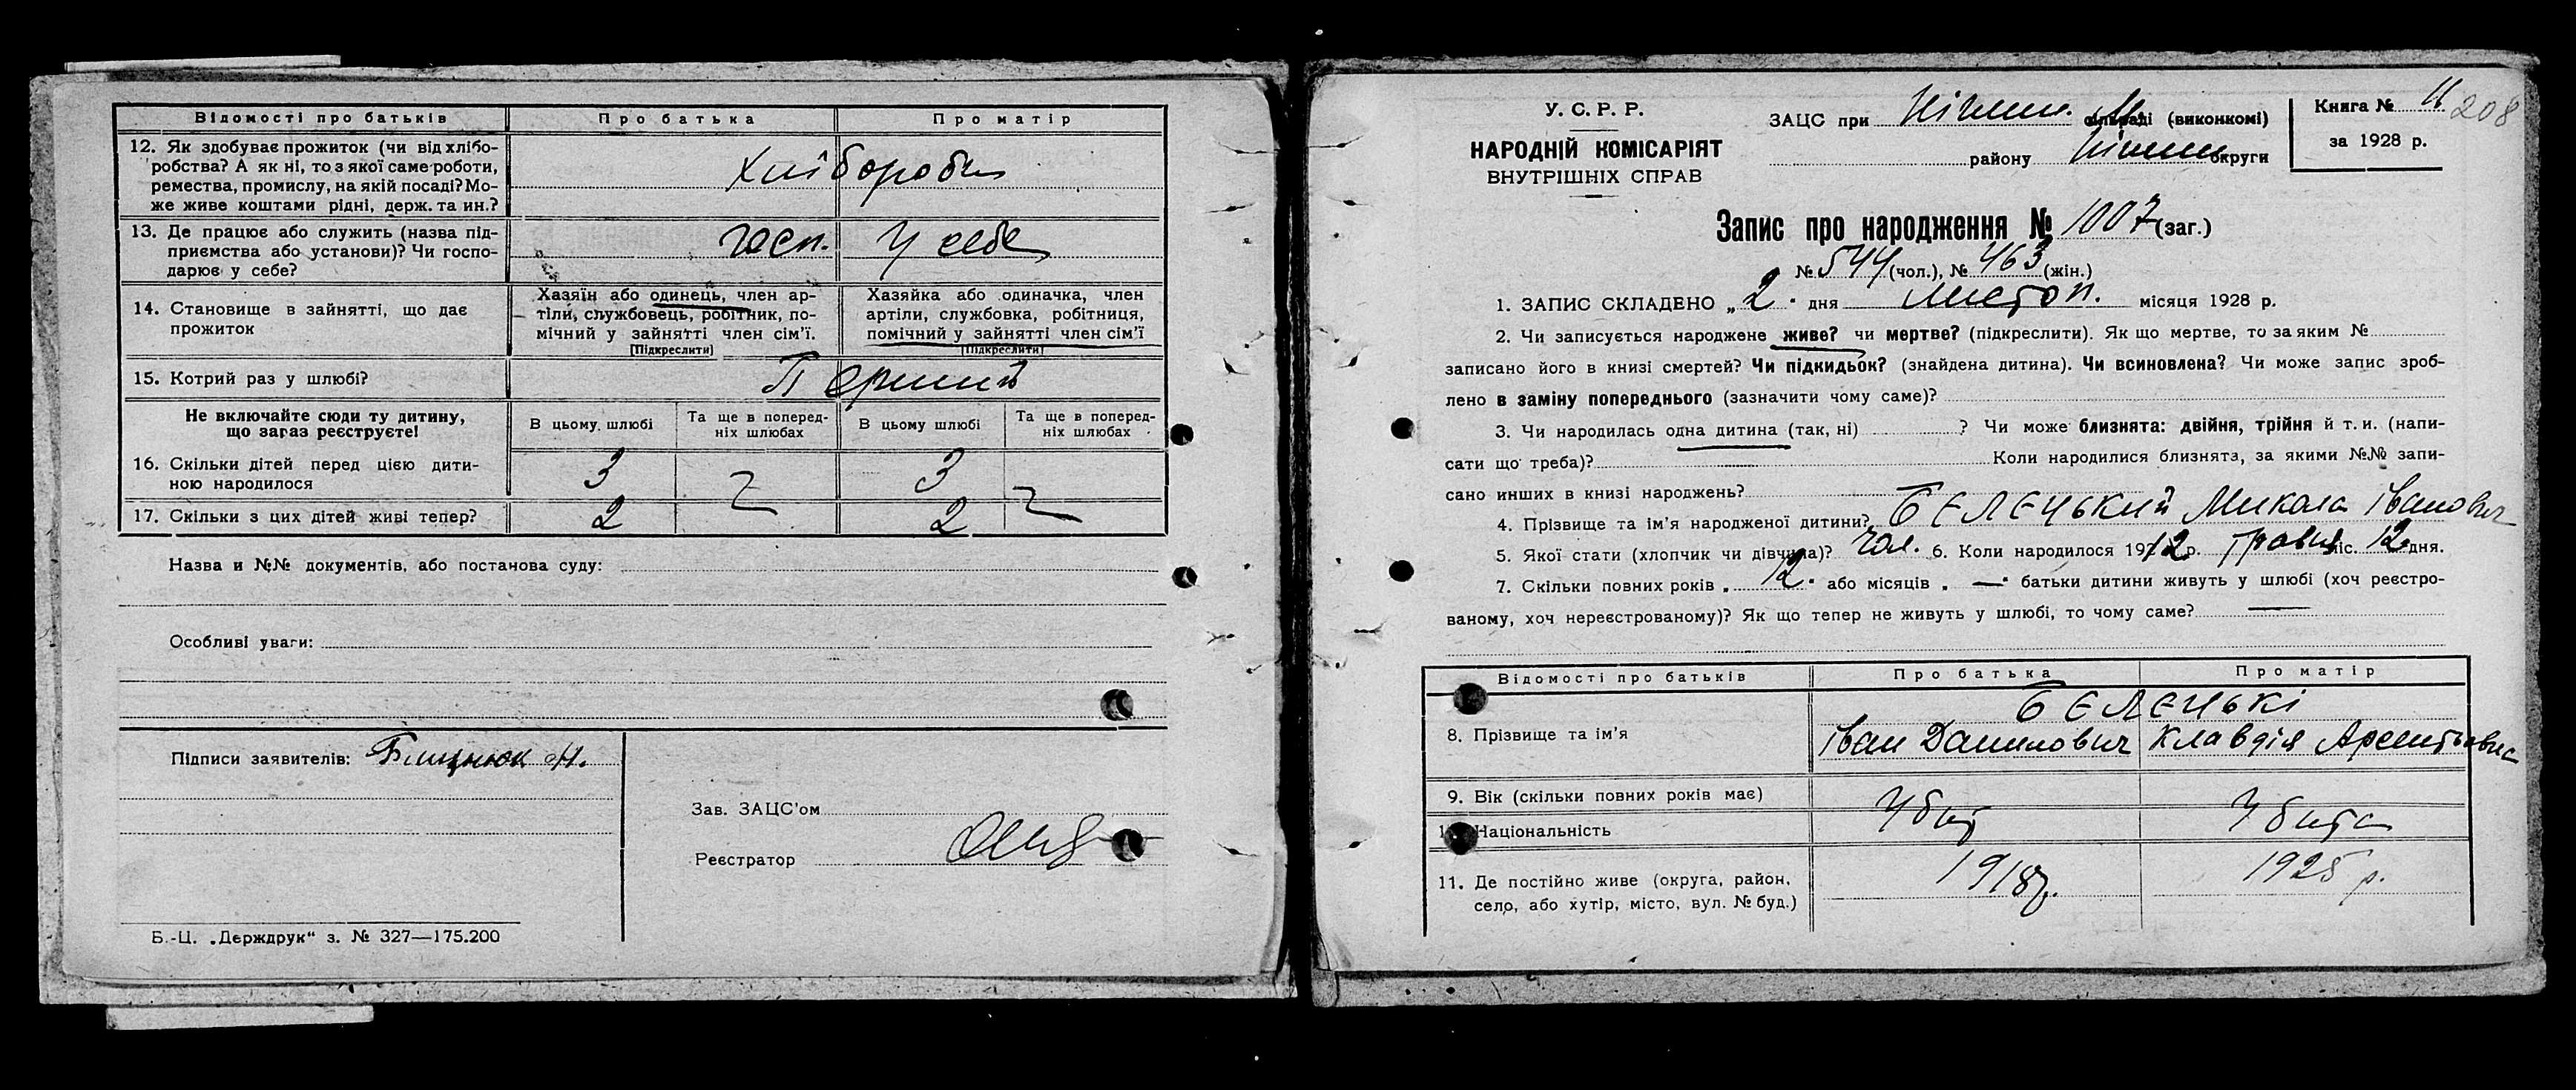 Відомості про батьків
Про батька
Про матір
12. Як здобуває прожиток (чи від хлібо-
робства? А як ні, то з якої саме роботи,
ремества, промислу, на якій посаді? Мо-
же живе коштами рідні, держ. та ин.?
Хлібороби
13. Де працює або служить (назва під-
приємства або установи)? Чи госпо-
дарює у себе?
госп. у себе
14. Становище в зайнятті, що дає
прожиток
Хазяїн або одинець, член ар-
тіли, службовець, робітник, по-
мічний у зайнятті член сім'ї.
[Підкреслити]
Хазяйка або одиначка, член
артіли, службовка, робітниця,
помічний у зайнятті член сім'ї
[Підкреслити]
15. Котрий раз у шлюбі?
Перший
Не включайте сюди ту дитину,
що зараз реєструєте!
В цьому шлюбі
Та ще в поперед-
ніх шлюбах
В цьому шлюбі
Та ще в поперед-
ніх шлюбах
16. Скільки дітей перед цією дити-
ною народилося
3
3
17. Скільки з цих дітей живі тепер?
2
2
Назва и №№ документів, або постанова суду:
Особливі уваги:
Підписи заявителів:
Зав. ЗАЦС'ом
Реєстратор
Б.-Ц. „Держдрук“ з. № 327—175.200
У. С. Р. Р.
НАРОДНІЙ КОМІСАРІЯТ
ВНУТРІШНІХ СПРАВ
ЗАЦС при Ніжин. (виконкомі)
району Ніжин округи
Книга № 11
за 1928 р.
208
Запис про народження № 1007 (заг.)
№ 544 (чол.), № 463 (жін.)
1. ЗАПИС СКЛАДЕНО „2“ дня листоп. місяця 1928 р.
2. Чи записується народжене живе? чи мертве? (підкреслити). Як що мертве, то за яким №
записано його в книзі смертей? Чи підкидьок? (знайдена дитина). Чи всиновлена? Чи може запис зроб-
лено в заміну попереднього (зазначити чому саме)?
3. Чи народилась одна дитина (так, ні) ? Чи може близнята: двійня, трійня й т. и. (напи-
сати що треба)? Коли народилися близнята, за якими №№ запи-
сано инших в книзі народжень?
4. Прізвище та ім'я народженої дитини? БЄЛЄЦЬКИЙ Микола Іванович
5. Якої стати (хлопчик чи дівчина)? чол. 6. Коли народилося 1912 р. травня міс. 12 дня.
7. Скільки повних років „12“ або місяців „—“ батьки дитини живуть у шлюбі (хоч реєстро-
ваному, хоч нереєстрованому)? Як що тепер не живуть у шлюбі, то чому саме? —
Відомості про батьків
Про батька
Про матір
БЄЛЄЦЬКІ
8. Прізвище та ім'я
Іван Данилович
Клавдія Арсентьевна
9. Вік (скільки повних років має)
Убит
Убита
Національність
1918 р.
1925 р.
11. Де постійно живе (округа, район,
село, або хутір, місто, вул. № буд.)